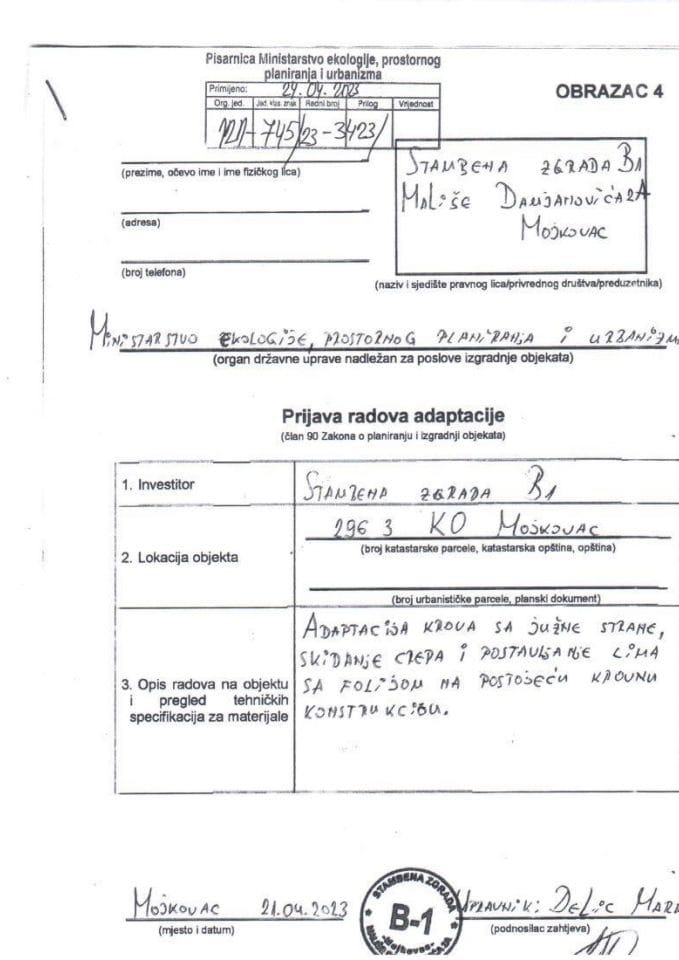 Pisarnica Ministarstvo ekologije, prostornog
planiranja i urbanizma
Primljeno: 24.04.2023
Org. jed. Jed. klas. znak Redni broj Prilog Vrijednost
745/23-3423/
OBRAZAC 4
STAMBENA ZGRADA B1
MALIŠE DAMJANOVIĆA 2A
MOJKOVAC
(prezime, očevo ime i ime fizičkog lica)
(adresa)
(broj telefona)
(naziv i sjedište pravnog lica/privrednog društva/preduzetnika)
MINISTARSTVO EKOLOGIJE, PROSTORNOG PLANIRANJA I URBANIZM
(organ državne uprave nadležan za poslove izgradnje objekata)
Prijava radova adaptacije
(član 90 Zakona o planiranju i izgradnji objekata)
1. Investitor
STAMBENA ZGRADA B1
2. Lokacija objekta
296 3 KO MOJKOVAC
(broj katastarske parcele, katastarska opština, opština)
(broj urbanističke parcele, planski dokument)
3. Opis radova na objektu
i pregled tehničkih
specifikacija za materijale
ADAPTACIJA KROVA SA JUŽNE STRANE,
SKIDANJE CREPA I POSTAVLJANJE LIMA
SA FOLIJOM NA POSTOJEĆU KROVNU
KONSTRUKCIJU.
MOJKOVAC 21.04.2023
(mjesto i datum)
STAMBENA ZGRADA
B-1
-Mojkovac-
UPRAVNIK: DELIĆ MAR
(podnosilac zahtjeva)